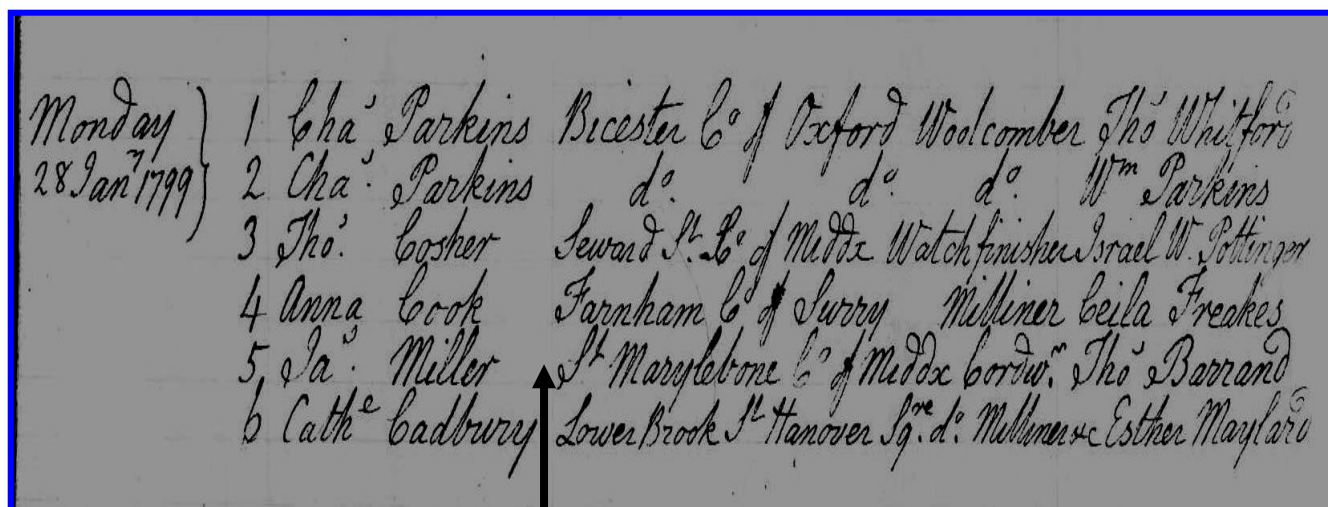 Monday 1 Chaˢ Parkins Bicester Cº of Oxford Woolcomber Thoˢ Whitford
28 Janʸ 1799 2 Chaˢ. Parkins dº. dº. dº. Wᵐ Parkins
3 Thoˢ. Cosher Seward Sᵗ. Cº of Middx Watchfinisher Israel W. Pottinger
4 Anna Cook Farnham Cº of Surry Milliner Ceila Freakes
5 Jaˢ. Miller Sᵗ Marylebone Cº of Middx Cordwʳ. Thoˢ Barrand
6 Cathᵉ Cadbury Lower Brook Sᵗ Hanover Sqʳᵉ. dº. Milliner &c Esther Maylard